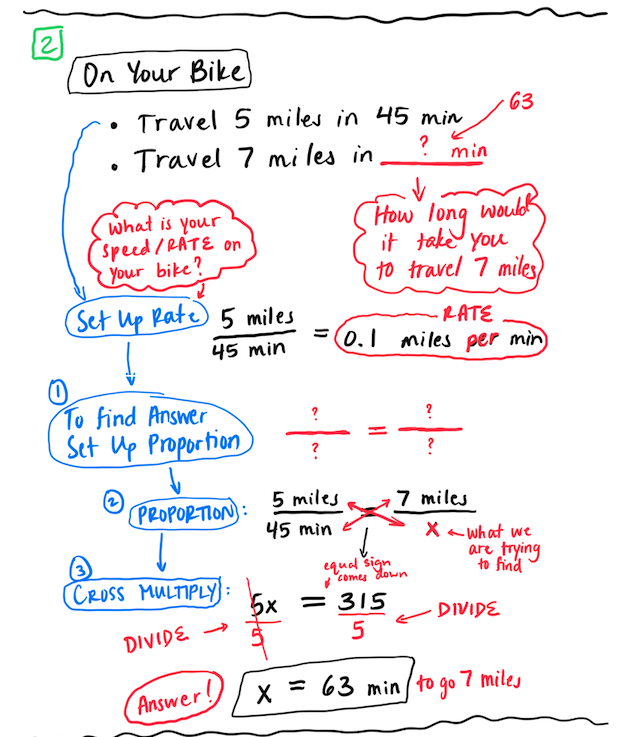 2
On Your Bike
• Travel 5 miles in 45 min
63
• Travel 7 miles in ? min
What is your
speed/RATE on
your bike?
How long would
it take you
to travel 7 miles
Set Up Rate
5 miles
45 min
=
RATE
0.1 miles per min
1
To find Answer
Set Up Proportion
? = ?
? ?
2
PROPORTION:
5 miles = 7 miles
45 min x
what we
are trying
to find
equal sign
comes down
3
CROSS MULTIPLY:
5x = 315
5 5
DIVIDE
DIVIDE
Answer!
x = 63 min
to go 7 miles